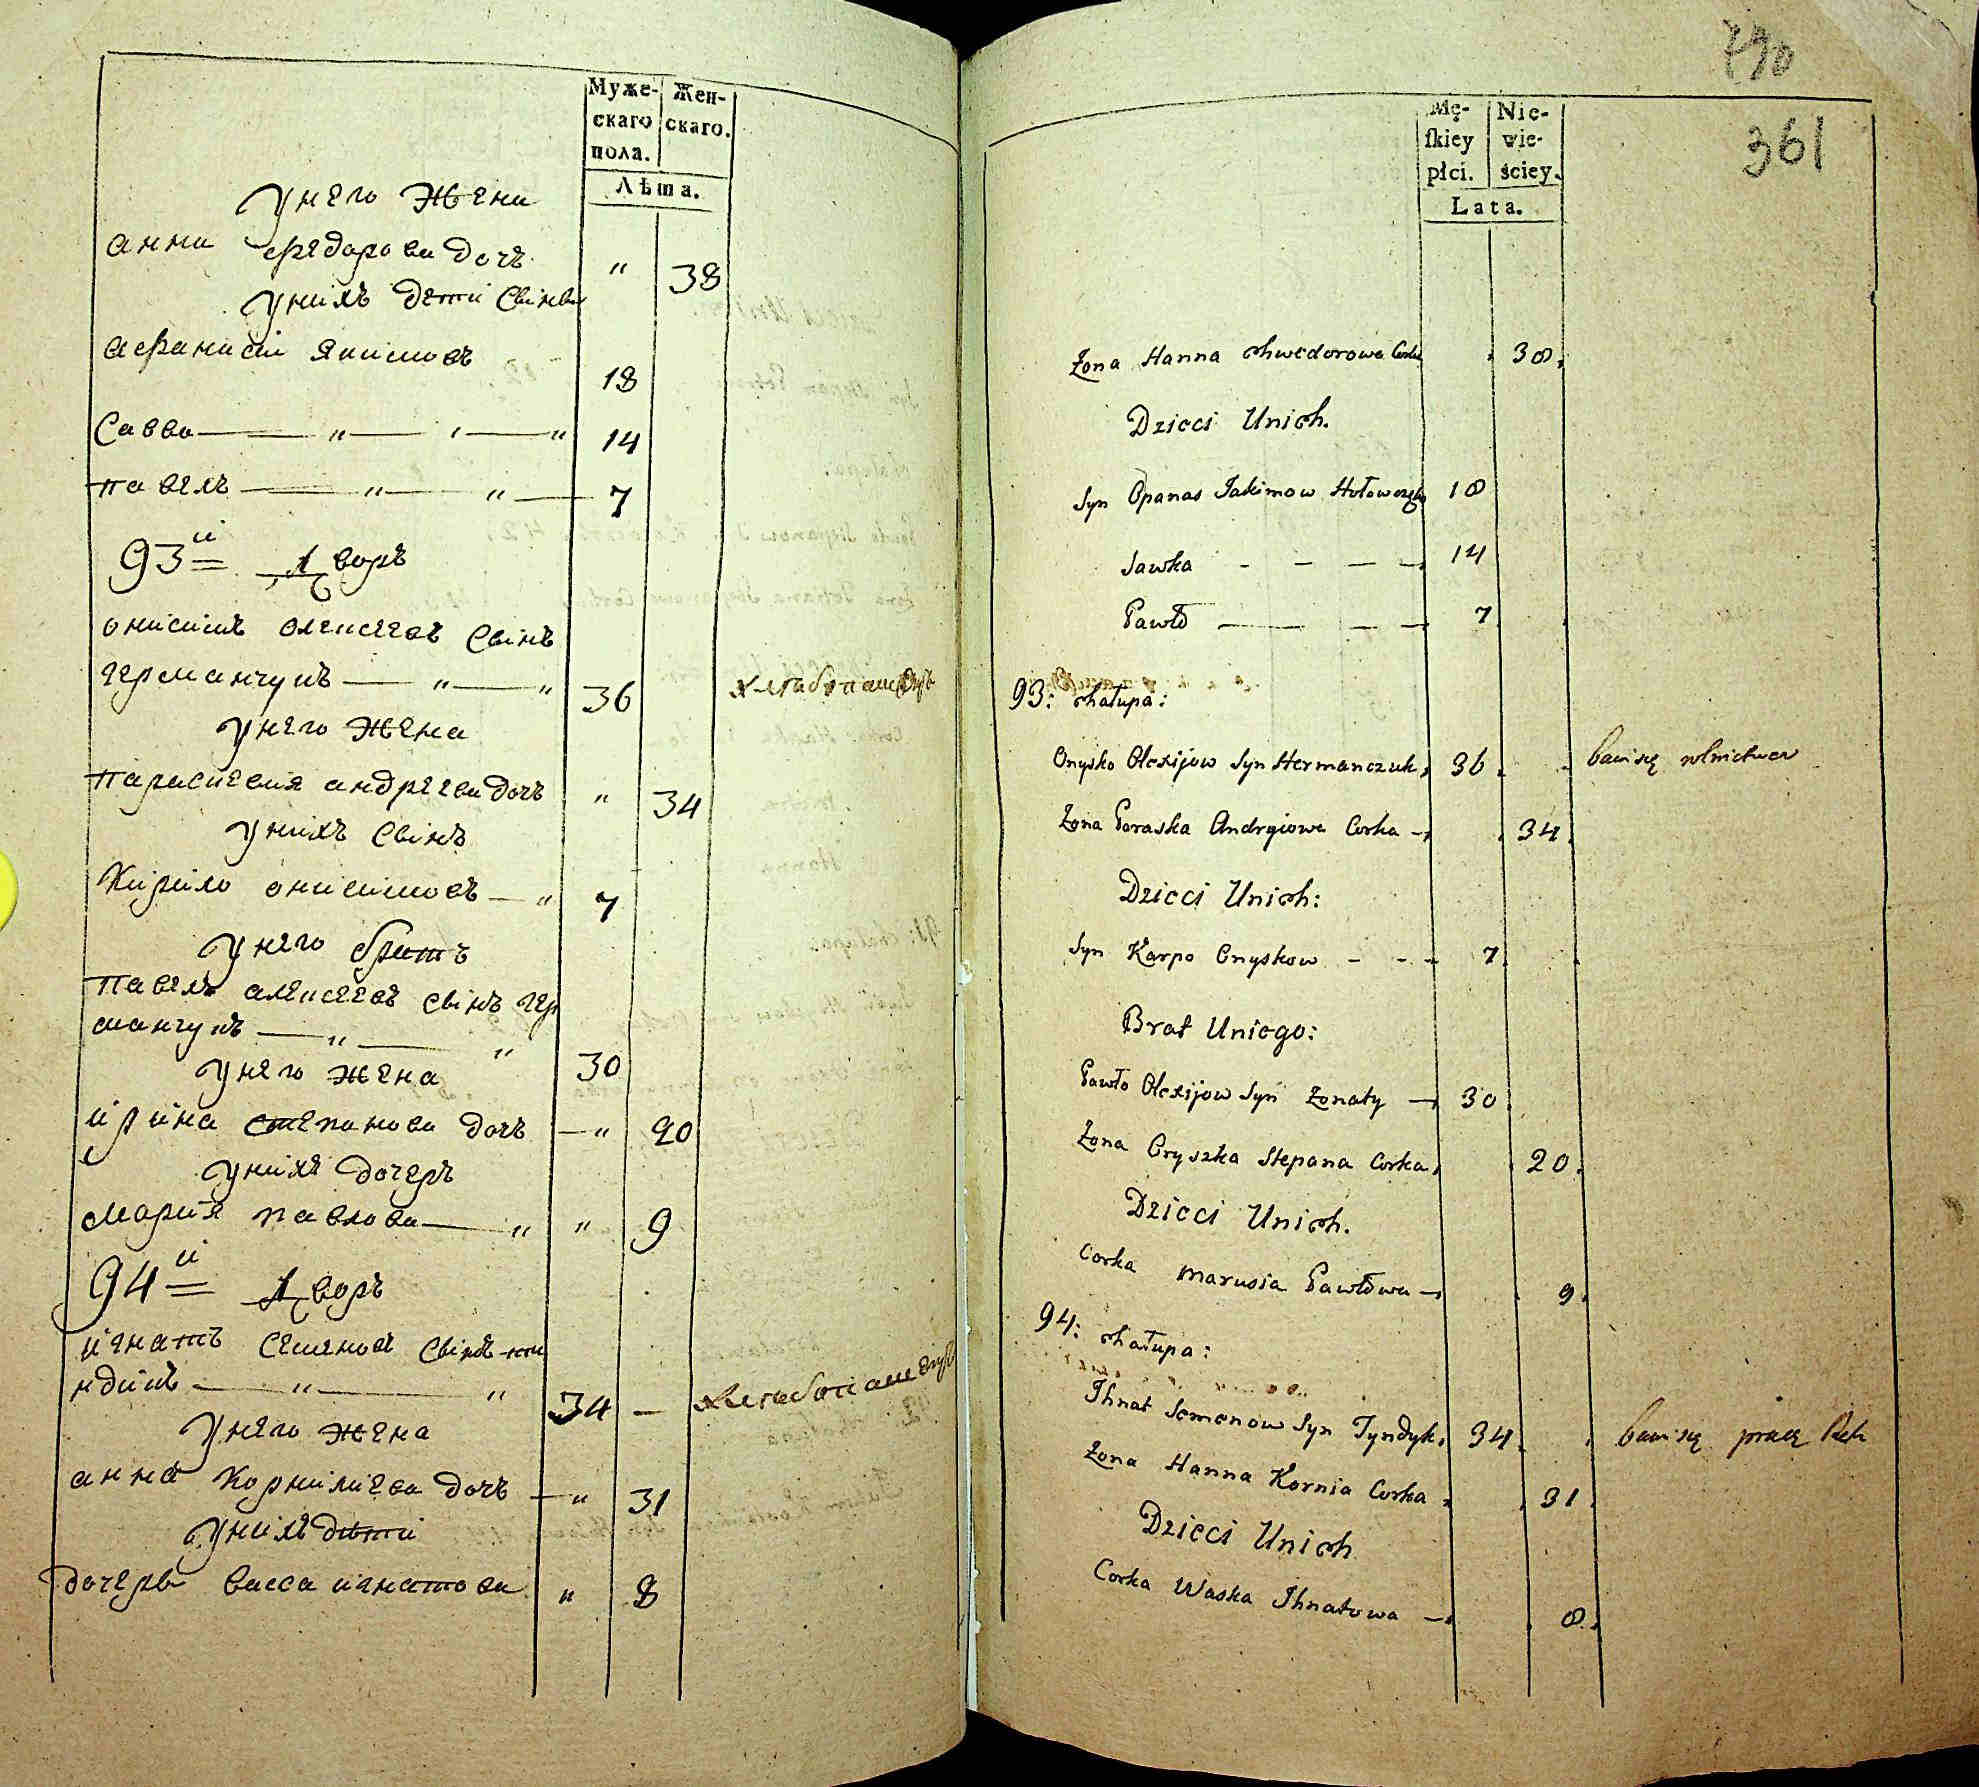 Муже-
скаго
пола.
Жен-
скаго.
Лѣта.
У него жена
анна федорова дочь " 38
У нихъ дети сыны
афанасий якимовъ 18
Савва — " — " 14
павелъ — " — " — 7
93й Дворъ
онисимъ алексеевъ сынъ
германчукъ — " — " 36 хлебопашецъ
У него жена
параскевия андреева дочь " 34
У нихъ сынъ
Кирило онисимовъ — " 7
У него братъ
павелъ алексеевъ сынъ гер
манчукъ — " — " 30
У него жена
ирина степанова дочь — " 20
У нихъ дочерь
мария павлова — " " 9
94й Дворъ
игнатъ семеновъ сынъ ти
ндикъ — " — " 34 — хлебопашецъ
У него жена
анна Корнилиева дочь — " 31
У нихъ дѣти
дочерь васса игнатова " 8
790
361
Mę-
skiey
płci.
Nie-
wie-
ściey.
Lata.
Żona Hanna Chwedorowa Corka 38
Dzieci Unich.
Syn Opanas Jakimow Hołoworzko 18
Sawka - - - - 14
Pawło — — — 7
93: Chałupa:
Onysko Olexijow Syn Hermanczuk 36 bawi się rolnictwem
Żona Paraska Andryiowa Corka 34
Dzieci Unich:
Syn Karpo Onyskow - - - 7
Brat Uniego:
Pawło Olexijow Syn Żonaty — 30
Żona Oryszka Stepana Corka 20
Dzieci Unich.
Corka Marusia Pawłowa — 9
94: Chałupa:
Ihnat Semenow Syn Tyndyk 34 bawi się pracą Rąk
Żona Hanna Kornia Corka 31
Dzieci Unich
Corka Waska Ihnatowa — 8